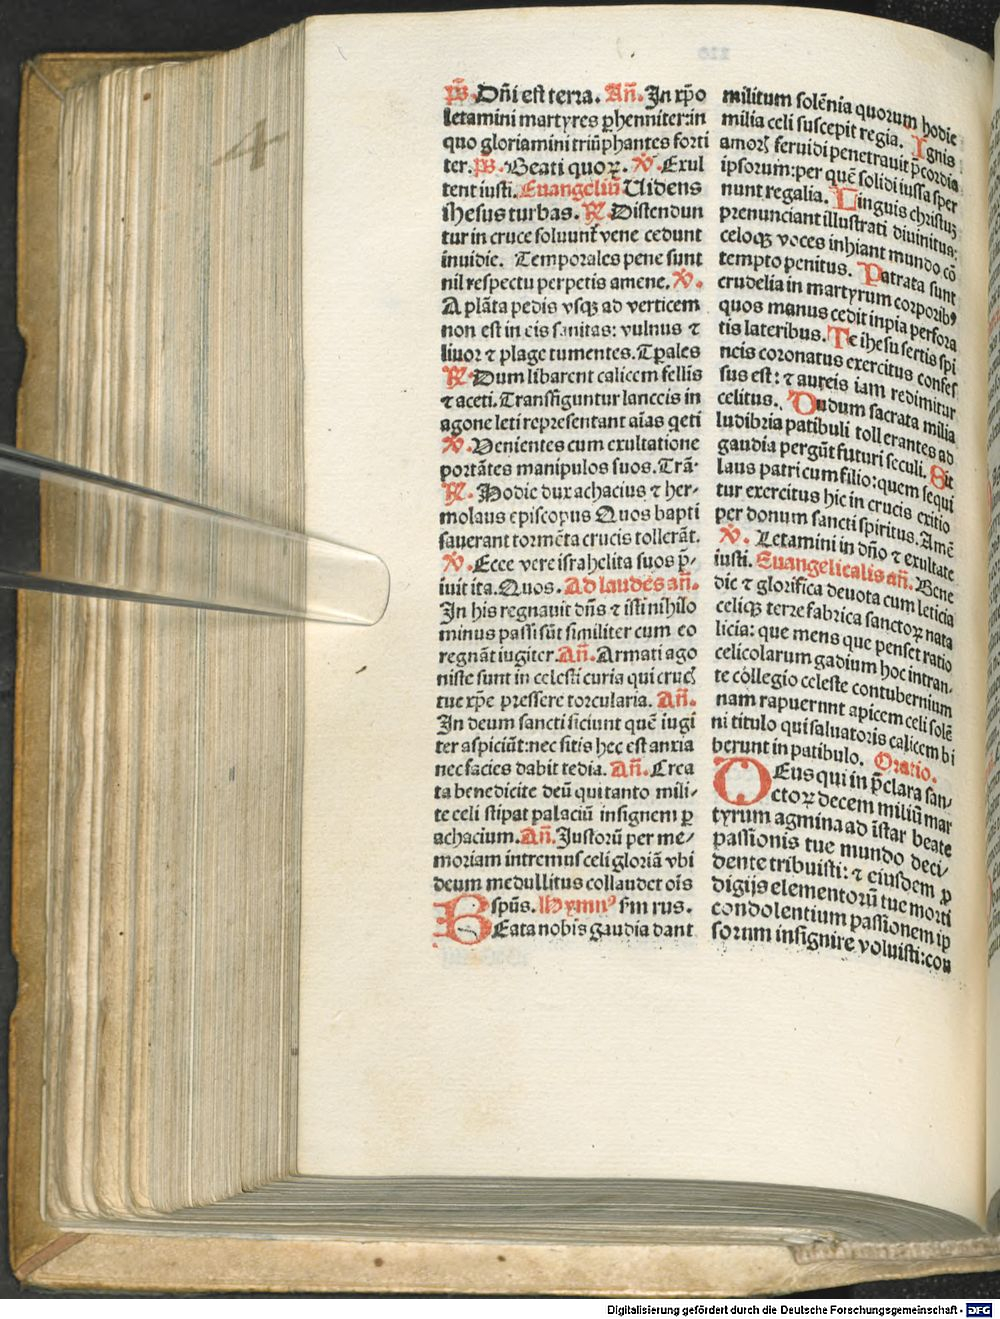 4
p̄s. Dn̄i est terra. An̄. In xp̄o
letamini martyres ꝑhenniter:in
quo gloriamini triūphantes forti
ter. p̄s. Beati quoꝝ. V̇. Exul
tent iusti. Euangeliū Uidens
ihesus turbas. R̄. Distendun
tur in cruce soluunt̄ vene cedunt
inuidie. Temporales pene sunt
nil respectu perpetis amene. V̇.
A plāta pedis vsqꝫ ad verticem
non est in eis sanitas: vulnus ⁊
liuor ⁊ plage tumentes. Tꝑales
R̄. Dum libarent calicem fellis
⁊ aceti. Transfiguntur lanceis in
agone leti representant aīas qeti
V̇. Venientes cum exultatione
portātes manipulos suos. Trā.
R̄. Hodie dux achacius ⁊ her-
molaus episcopus Quos bapti
sauerant tormēta crucis tollerāt.
V̇. Ecce vere israhelita suos p̄-
iuit ita. Quos. Ad laudes an̄.
In his regnauit dn̄s ⁊ isti nihilo
minus passi sūt similiter cum eo
regnāt iugiter. An̄. Armati ago
niste sunt in celesti curia qui cruc̄
tue xp̄e pressere torcularia. An̄.
In deum sancti siciunt quē iugi
ter aspiciāt:nec sitis hec est anxia
nec facies dabit tedia. An̄. Crea
ta benedicite deū qui tanto mili-
te celi stipat palaciū insignem ꝑ
achacium. An̄. Justorū per me-
moriam intremus celi gloriā vbi
deum medullitus collaudet oīs
spūs. Hymnꝰ sm rus.
BEata nobis gaudia dant
militum solēnia quorum hodie
milia celi suscepit regia. Ignis
amorꝭ feruidi penetrauit p̄cordia
ipsorum:per quē solidi iussa sper
nunt regalia. Linguis christuꝫ
prenunciant illustrati diuinitus:
celoqꝫ voces inhiant mundo cō
tempto penitus. Patrata sunt
crudelia in martyrum corporibꝰ
quos manus cedit inpia perfora
tis lateribus. Te ihesu sertis spi
neis coronatus exercitus confes
sus est: ⁊ aureis iam redimitur
celitus. Dudum sacrata milia
ludibria patibuli tollerantes ad
gaudia pergūt futuri seculi. Sit
laus patri cum filio:quem sequi
tur exercitus hic in crucis exitio
per donum sancti spiritus. Amē
V̇. Letamini in dn̄o ⁊ exultate
iusti. Euangelicalis an̄. Bene
dic ⁊ glorifica deuota cum leticia
celiqꝫ terre fabrica sanctoꝝ nata
licia: que mens que penset ratio
celicolarum gadium hoc intran-
te collegio celeste contubernium
nam rapuernnt apicem celi solē
ni titulo qui saluatoris calicem bi
berunt in patibulo. Oratio.
DEus qui in p̄clara san-
ctoꝝ decem miliū mar
tyrum agmina ad īstar beate
passionis tue mundo deci-
dente tribuisti: ⁊ eiusdem ꝑ
digijs elementorū tue morti
condolentium passionem ip
sorum insignire voluisti:con
Digitalisierung gefördert durch die Deutsche Forschungsgemeinschaft - DFG